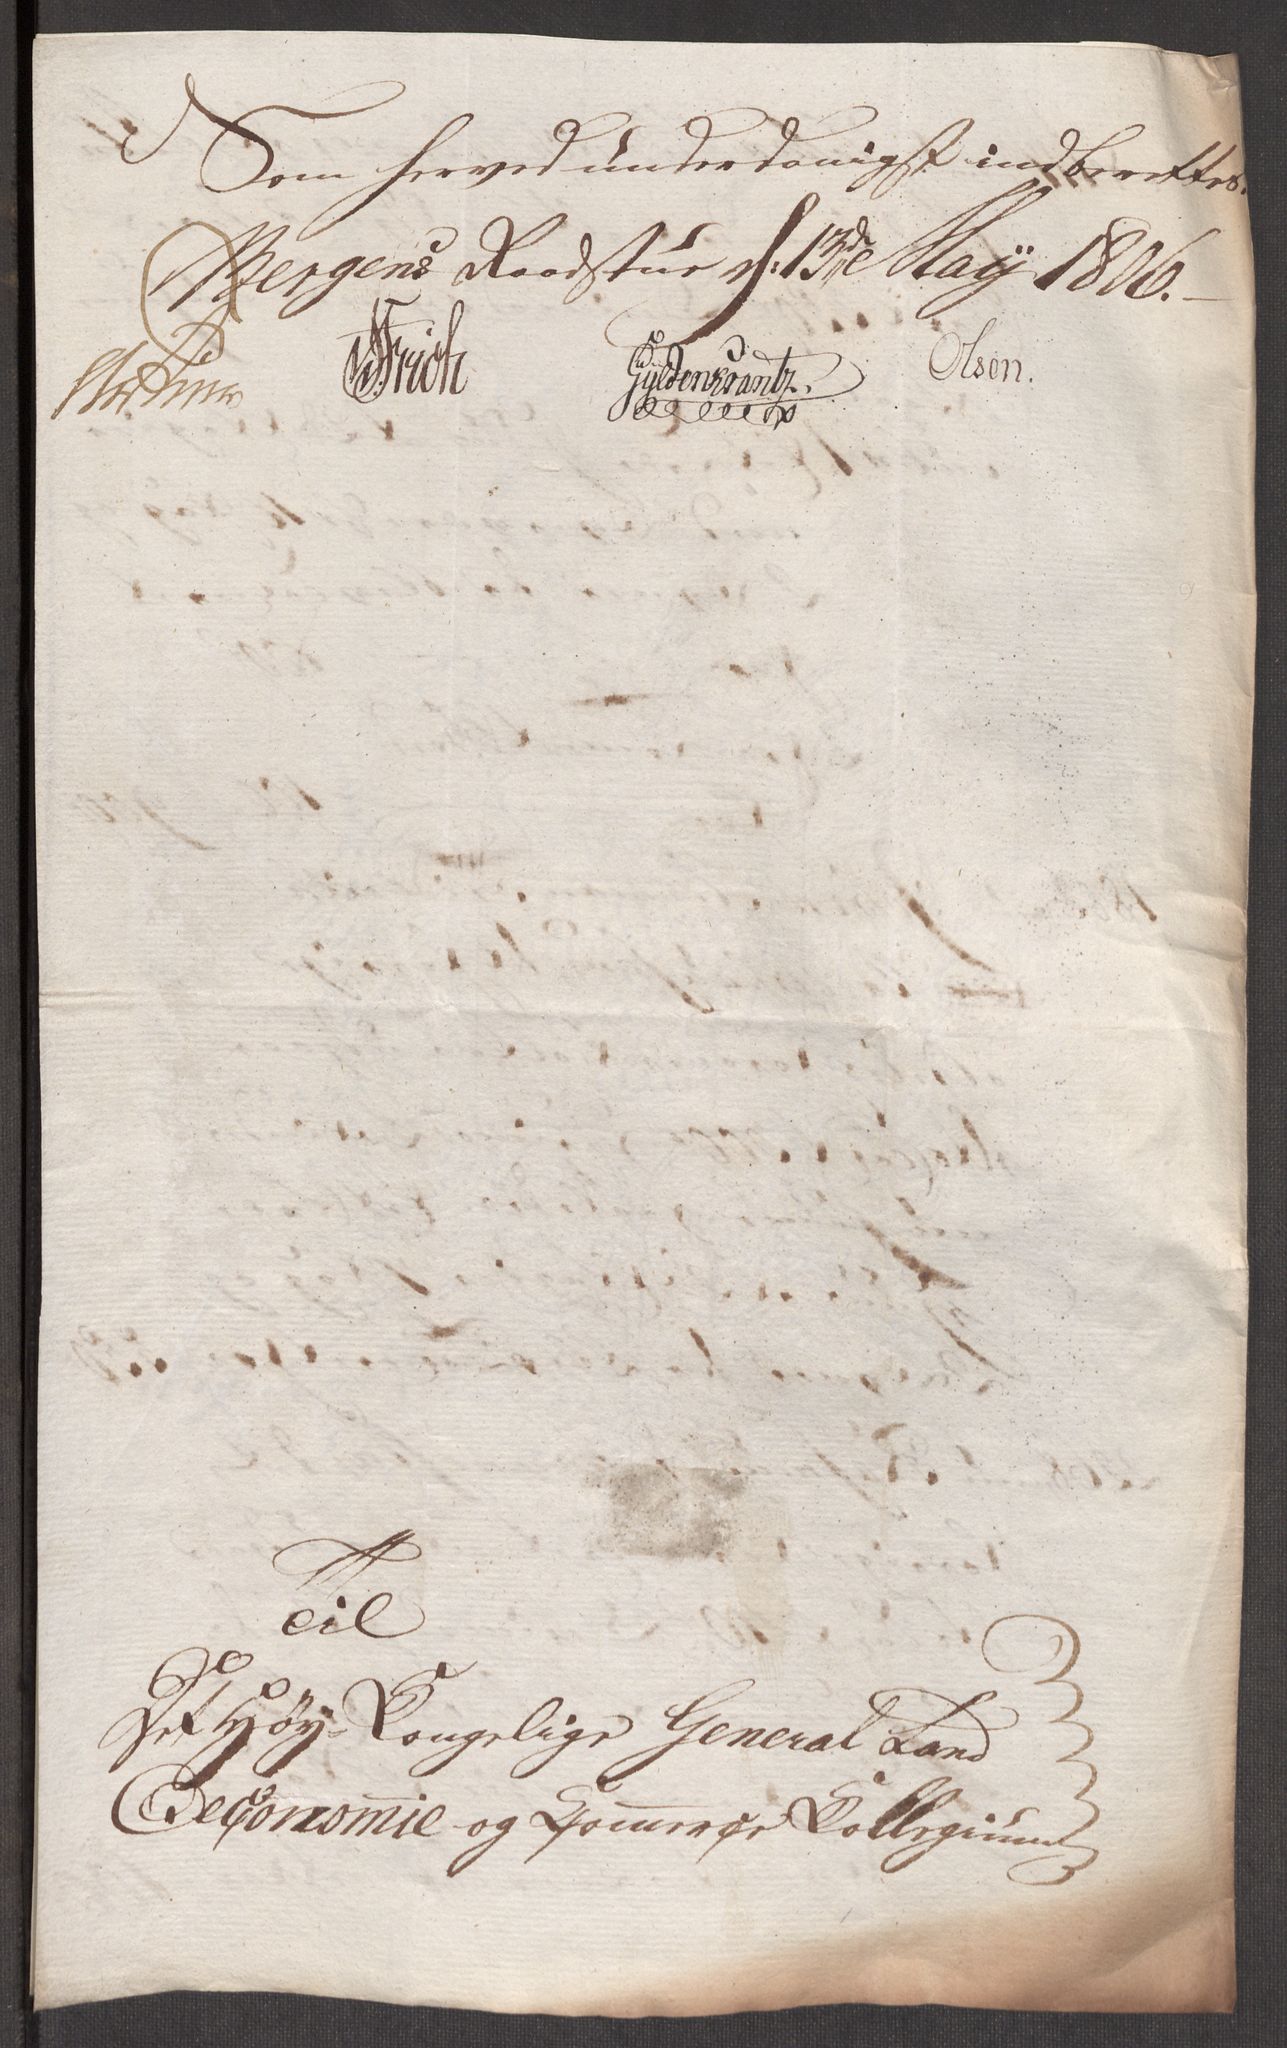 Som herved underdanigst indberettes.
Bergens Raadstue d: 13de Maÿ 1806. –
Frich Gÿldenkrantz. Olsen.
Til
Det Høy Kongelige General Land
Oeconomie og Commerce Collegium